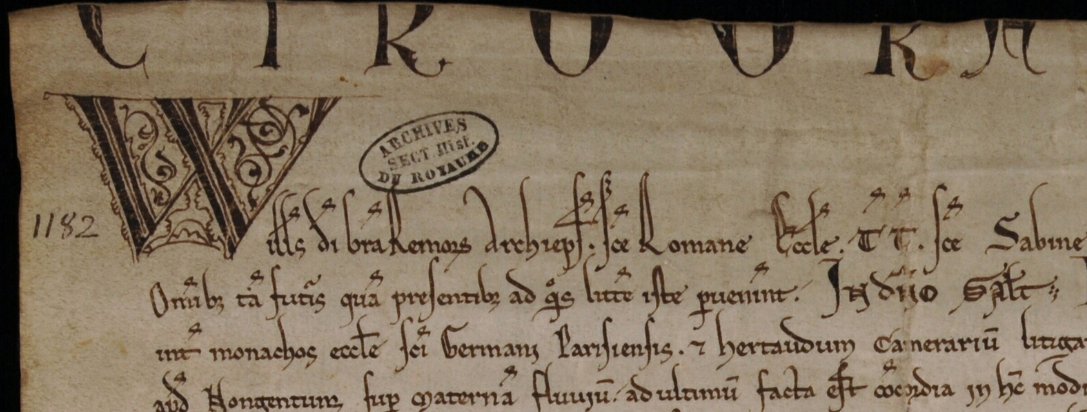 CIROGRA
ARCHIVES
SECT. Hist.
DU ROYAUME
1182
Will's di gra Remoꝝ Archieps. sce Romane Eccle. TT. sce Sabine
Omib; ta futis qua presentib; ad qs littere iste puenint. In dno Salt
int monachos eccle sci Germani Parisiensis. ⁊ hertaudum Camerariu litiga
apd Nongentum sup Materna fluuiu. ad ultimu facta est cocordia in hc mod